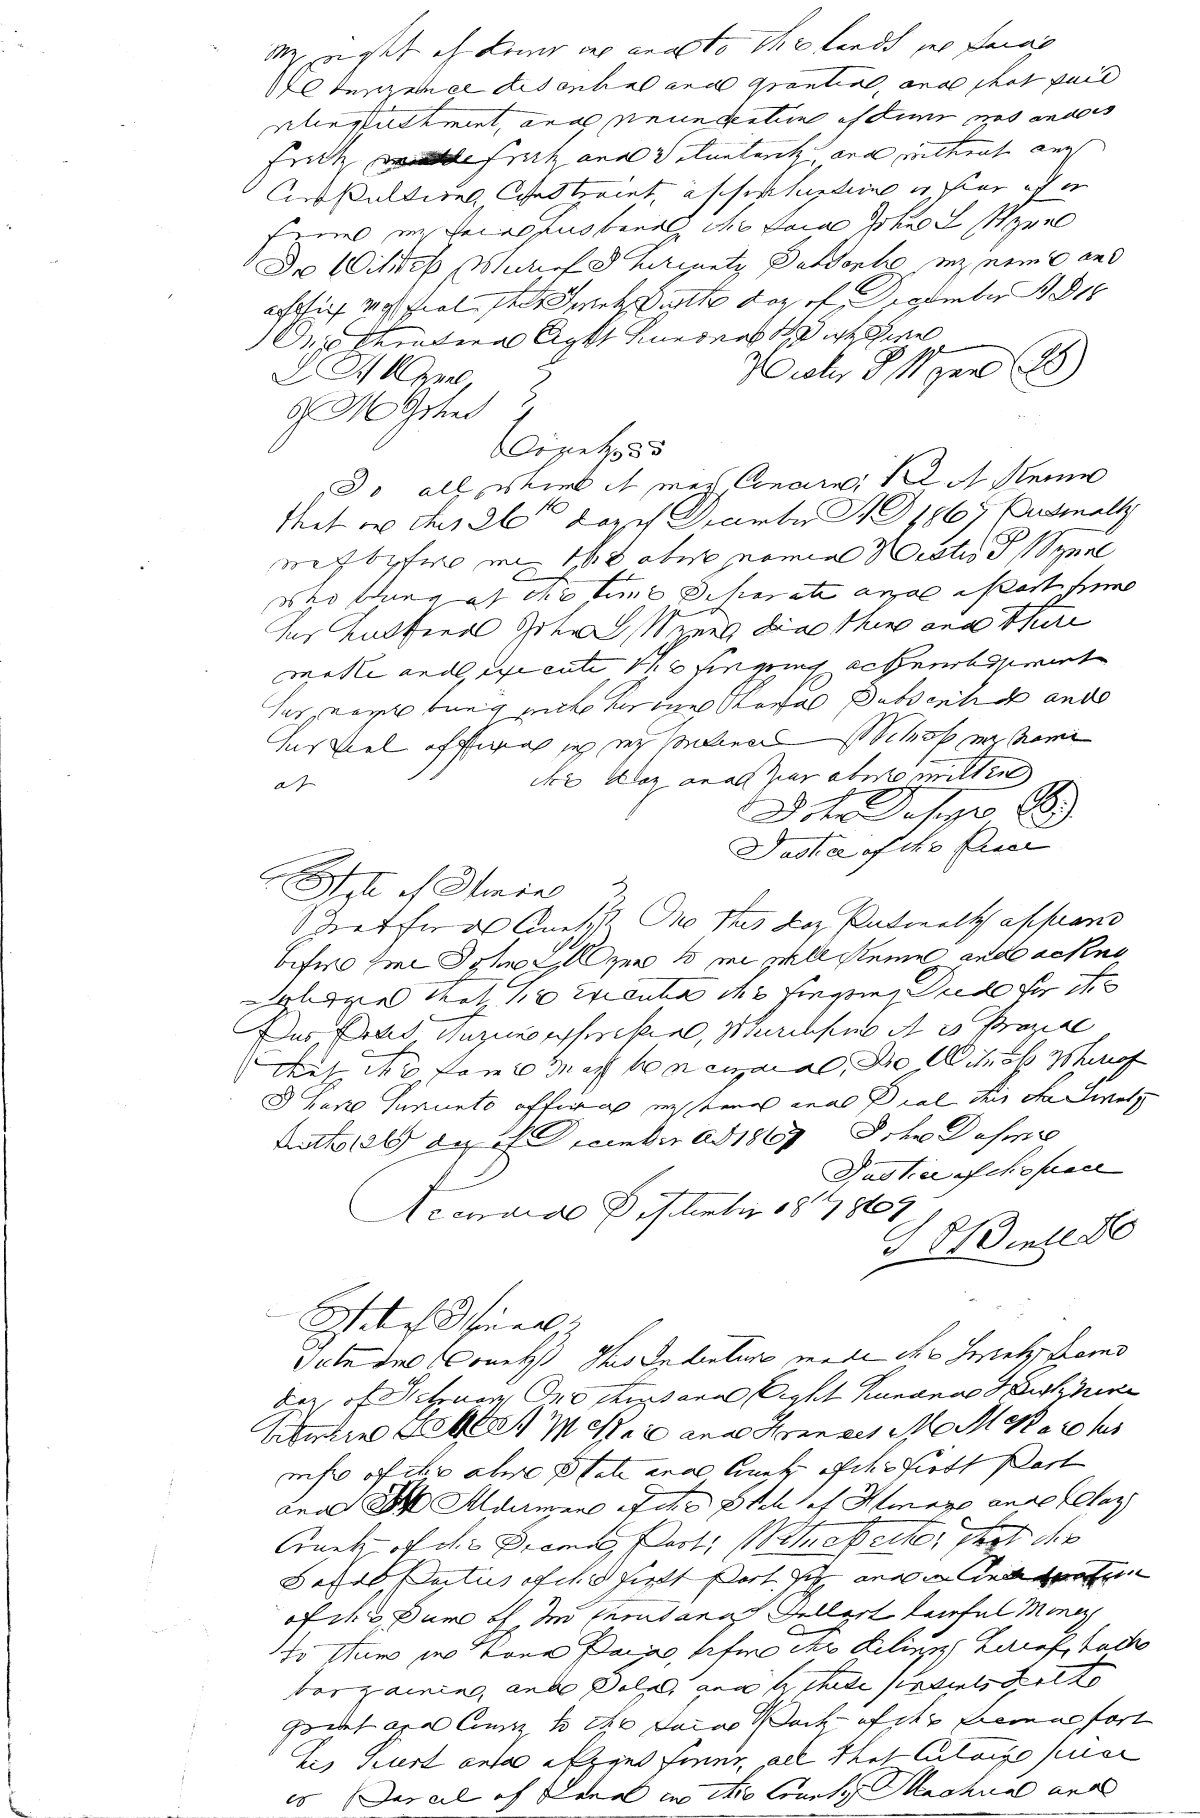 my right of dower in and to the lands in said
Conveyance described and granted, and that said
relinquishment, and renunciation of dower was and is
freely made freely and Voluntarily, and without any
Compulsion, Constraint, apprehension or fear of or
from my said husband, the said John L Wynne
In Witness Whereof I hereunto Subscribe my name and
affix my seal this Twenty Sixth day of December AD 18
One thousand Eight hundred & Sixty Seven
L H Wynne Hester P Wynne (LS)
J M Johns
County ss
To all whom it may Concern; Be it Known
that on this 26th day of December AD 1867 Personally
met before me the above named Hester P Wynne
who being at the time Separate and apart from
her husband John L Wynne, did then and there
make and execute the foregoing acknowledgement
her name being with her own hand Subscribed and
her seal affixed in my presence Witness my name
at the day and year above written
John Dupree (LS)
Justice of the Peace
State of Florida
Bradford County On this day Personally appeared
before me John L Wynne to me well Known and ackno
-wledged that he executed the foregoing Deed for the
Purposes therein expressed, Whereupon it is Prayed
that the same may be recorded, In Witness Whereof
I have hereunto affixed my hand and Seal this the Twenty
Sixth (26) day of December AD 1867 John Dupree
Justice of the peace
Recorded September 18th 1869
State of Florida
Putnam County This Indenture made the Twenty Second
day of February One thousand Eight hundred & Sixty nine
between McRae and Frances M McRae his
wife of the above State and County of the first Part
and Alderman of the State of Florida and Clay
County of the Second Part; Witnesseth; that the
Said Parties of the first Part for and in Consideration
of the Sum of Two thousand Dollars lawful Money
to them in hand Paid, before the delivery hereof, hath
bargained, and Sold, and by these presents doth
grant and Convey to the said Party of the second part
his heirs and assigns forever, all that Certain piece
or Parcel of Land in the County Alachua and